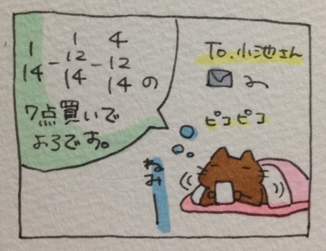 1　1　4
14-12-12
　14　14の
7点買いで
よろです。
To.小池さん
ピコピコ
ねみー